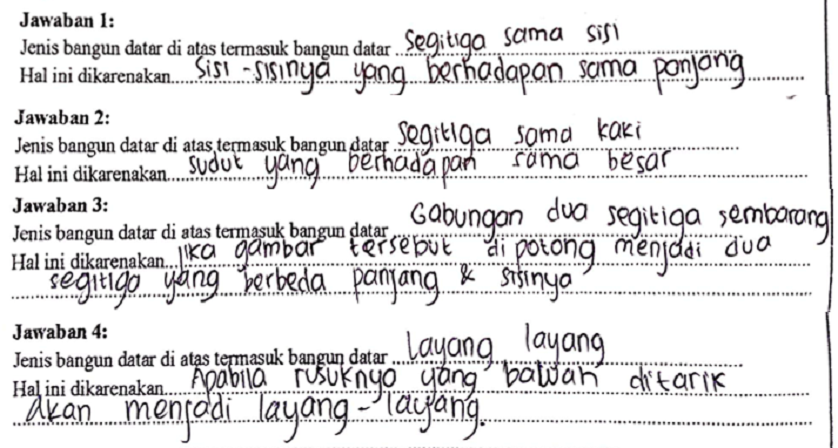 Jawaban 1:
Jenis bangun datar di atas termasuk bangun datar segitiga sama sisi
Hal ini dikarenakan sisi-sisinya yang berhadapan sama panjang
Jawaban 2:
Jenis bangun datar di atas termasuk bangun datar segitiga sama kaki
Hal ini dikarenakan sudut yang berhadapan sama besar
Jawaban 3:
Jenis bangun datar di atas termasuk bangun datar Gabungan dua segitiga sembarang
Hal ini dikarenakan jika gambar tersebut di potong menjadi dua
segitiga yang berbeda panjang & sisinya
Jawaban 4:
Jenis bangun datar di atas termasuk bangun datar Layang layang
Hal ini dikarenakan Apabila rusuknyo yang bawah ditarik
akan menjadi layang-layang.